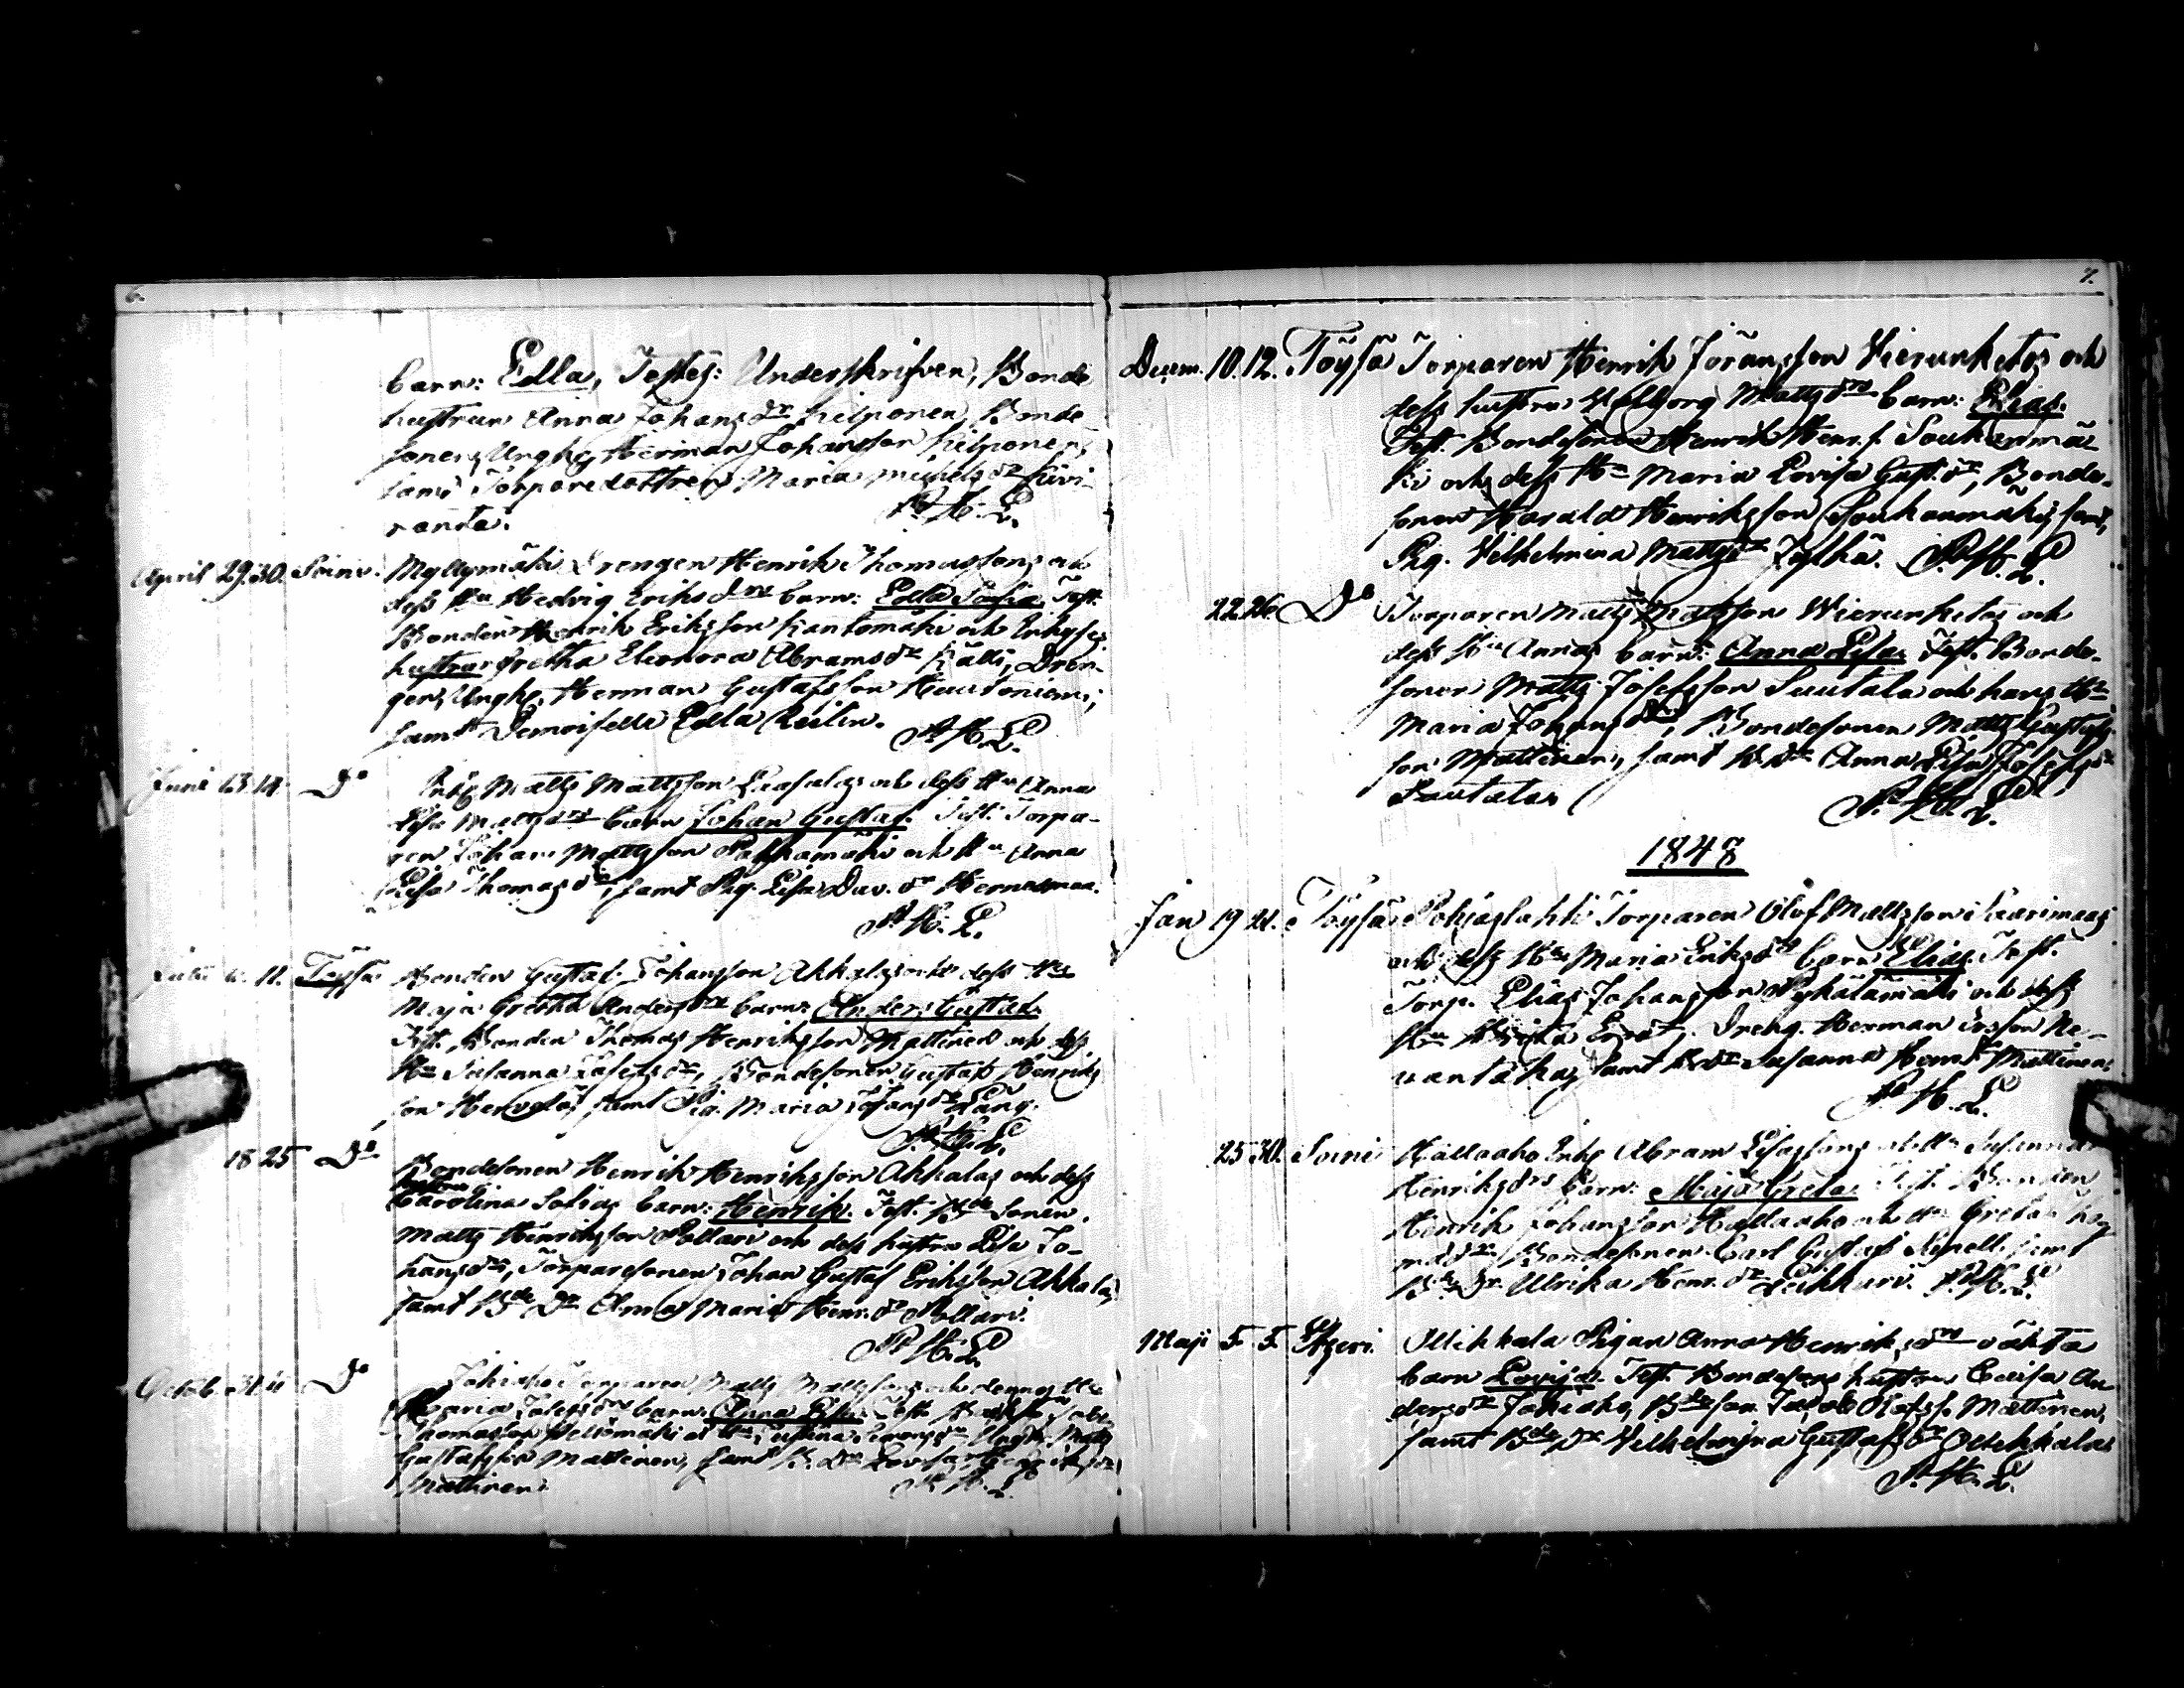 6.
barn: Edla, Testes: Underskrifven, Bonde
hustrun Anna Johansdr Kilponen, Bonde
sonen, Ungk. Herman Johansson Kilponen,
samt Torparedottren Maria Michelsdr Kivi-
ranta.
P. H. L.
April 29. 30. Soini. Myllymäki Drengen Henrik Thomassons och
dess Hu Hedvig Eriksdrs barn: Edla Sofia Test.
Bonden Henrik Eriksson Kantomäki och
hustrun Gretha Eleonora Abramsdr Källi, Dren-
gen, Ungk. Herman Gustafsson Huutoniemi,
samt Demoiselle Edla
P. H. L.
Juni 13 14 Do Matts Mattsson och dess Hu Anna
Lisa Mattsdrs barn Johan Gustaf. Test. Torpa-
ren Johan Mattsson och Hu Anna
Lisa Thomasdr, samt Pig. Lisa Dav. dr Hernesmaa.
P. H. L.
11. Töysä Bonden Gustaf Johansson Ahkalas och dess Hu
Maja Gretha Andersdrs barn: Anders Gustaf.
Test. Bonden Thomas Henriksson Mattinen och dess
Hu Susanna Josefsdr, Bondesonen Gustaf Henriks
son samt Pig. Maria Johansdr Lång.
P. H. L.
18 25 Do Bondesonen Henrik Henriksson Ahkalas och dess
hustru
Carolina Sofias barn: Henrik. Test. Bde Sonen
Matts Henriksson Pollari och dess hustru Lisa Jo-
hansdr, Torparesonen Johan Gustaf Eriksson Ahkala,
samt Bde Dr Anna Maria Henr. dr Pollari.
P. H. L.
Octob. 31 Do Torparen Matts Mattssons och dennes Hu
Maria Josefsdrs barn: Anna Lisa. Test.
Thomasson
Gustafsson Mattinen, samt B. Dr Lovisa
Mattinen.
P. H. L.
7.
Decem. 10. 12. Töysä Torparen Henrik Jöransson Vierunketos och
dess hustru Walborg Mattsdrs barn: Elias.
Test. Bondesonen Henrik Henr. s. Soukanmä-
ki och dess Hu Maria Lovisa Gust. dr, Bonde-
sonen Harald Henriksson Soukanmäki, samt
Pig. Vilhelmina Mattsdr P. H. L.
22. 26. Do Torparen Matts Mattsson Wierunketos och
dess Hu Annas barn: Anna Lisa. Test. Bonde-
sonen Matts Josefsson Suutala och hans Hu
Maria Johansdr, Bondesonen Matts Gustafs-
son Mattinen, samt B. Dr Anna Lisa Josefsdr
Suutala.
P. H. L.
1848
Jan 19 21. Töysä Pohjaslahti Torparen Olof Mattsson Saarimaas
och dess Hu Maria Eriksdrs barn Elias Test.
Torp. Elias Johansson Pykälämäki och dess
Hu Brita Ersdr, Dreng. Herman Ersson Ne-
vantaka, samt B. Dr Susanna Henr. dr Mattinen
P. H. L.
25 30. Soini Hallaaho Inhs Abram Elisassons och Hu Susanna
Henriksdrs barn: Maja Greta. Test. Bonden
Henrik Johansson Hallaaho och Hu Greta Tho-
masdr, Bondesonen Carl Gustaf samt
Bde Dr Ulrika Henr. dr Leikkari. P. H. L.
Maji 5. 5. Etseri. Ollikkala Pigan Anna Henriksdrs oäkta
barn Lovisa. Test. Bondesons hustrun Caisa An-
dersdr Jokiaho, Bde son Jacob Olofss. Mattinen,
samt Bde Dr Vilhelmina Gustafsdr Ollikkala
P. H. L.